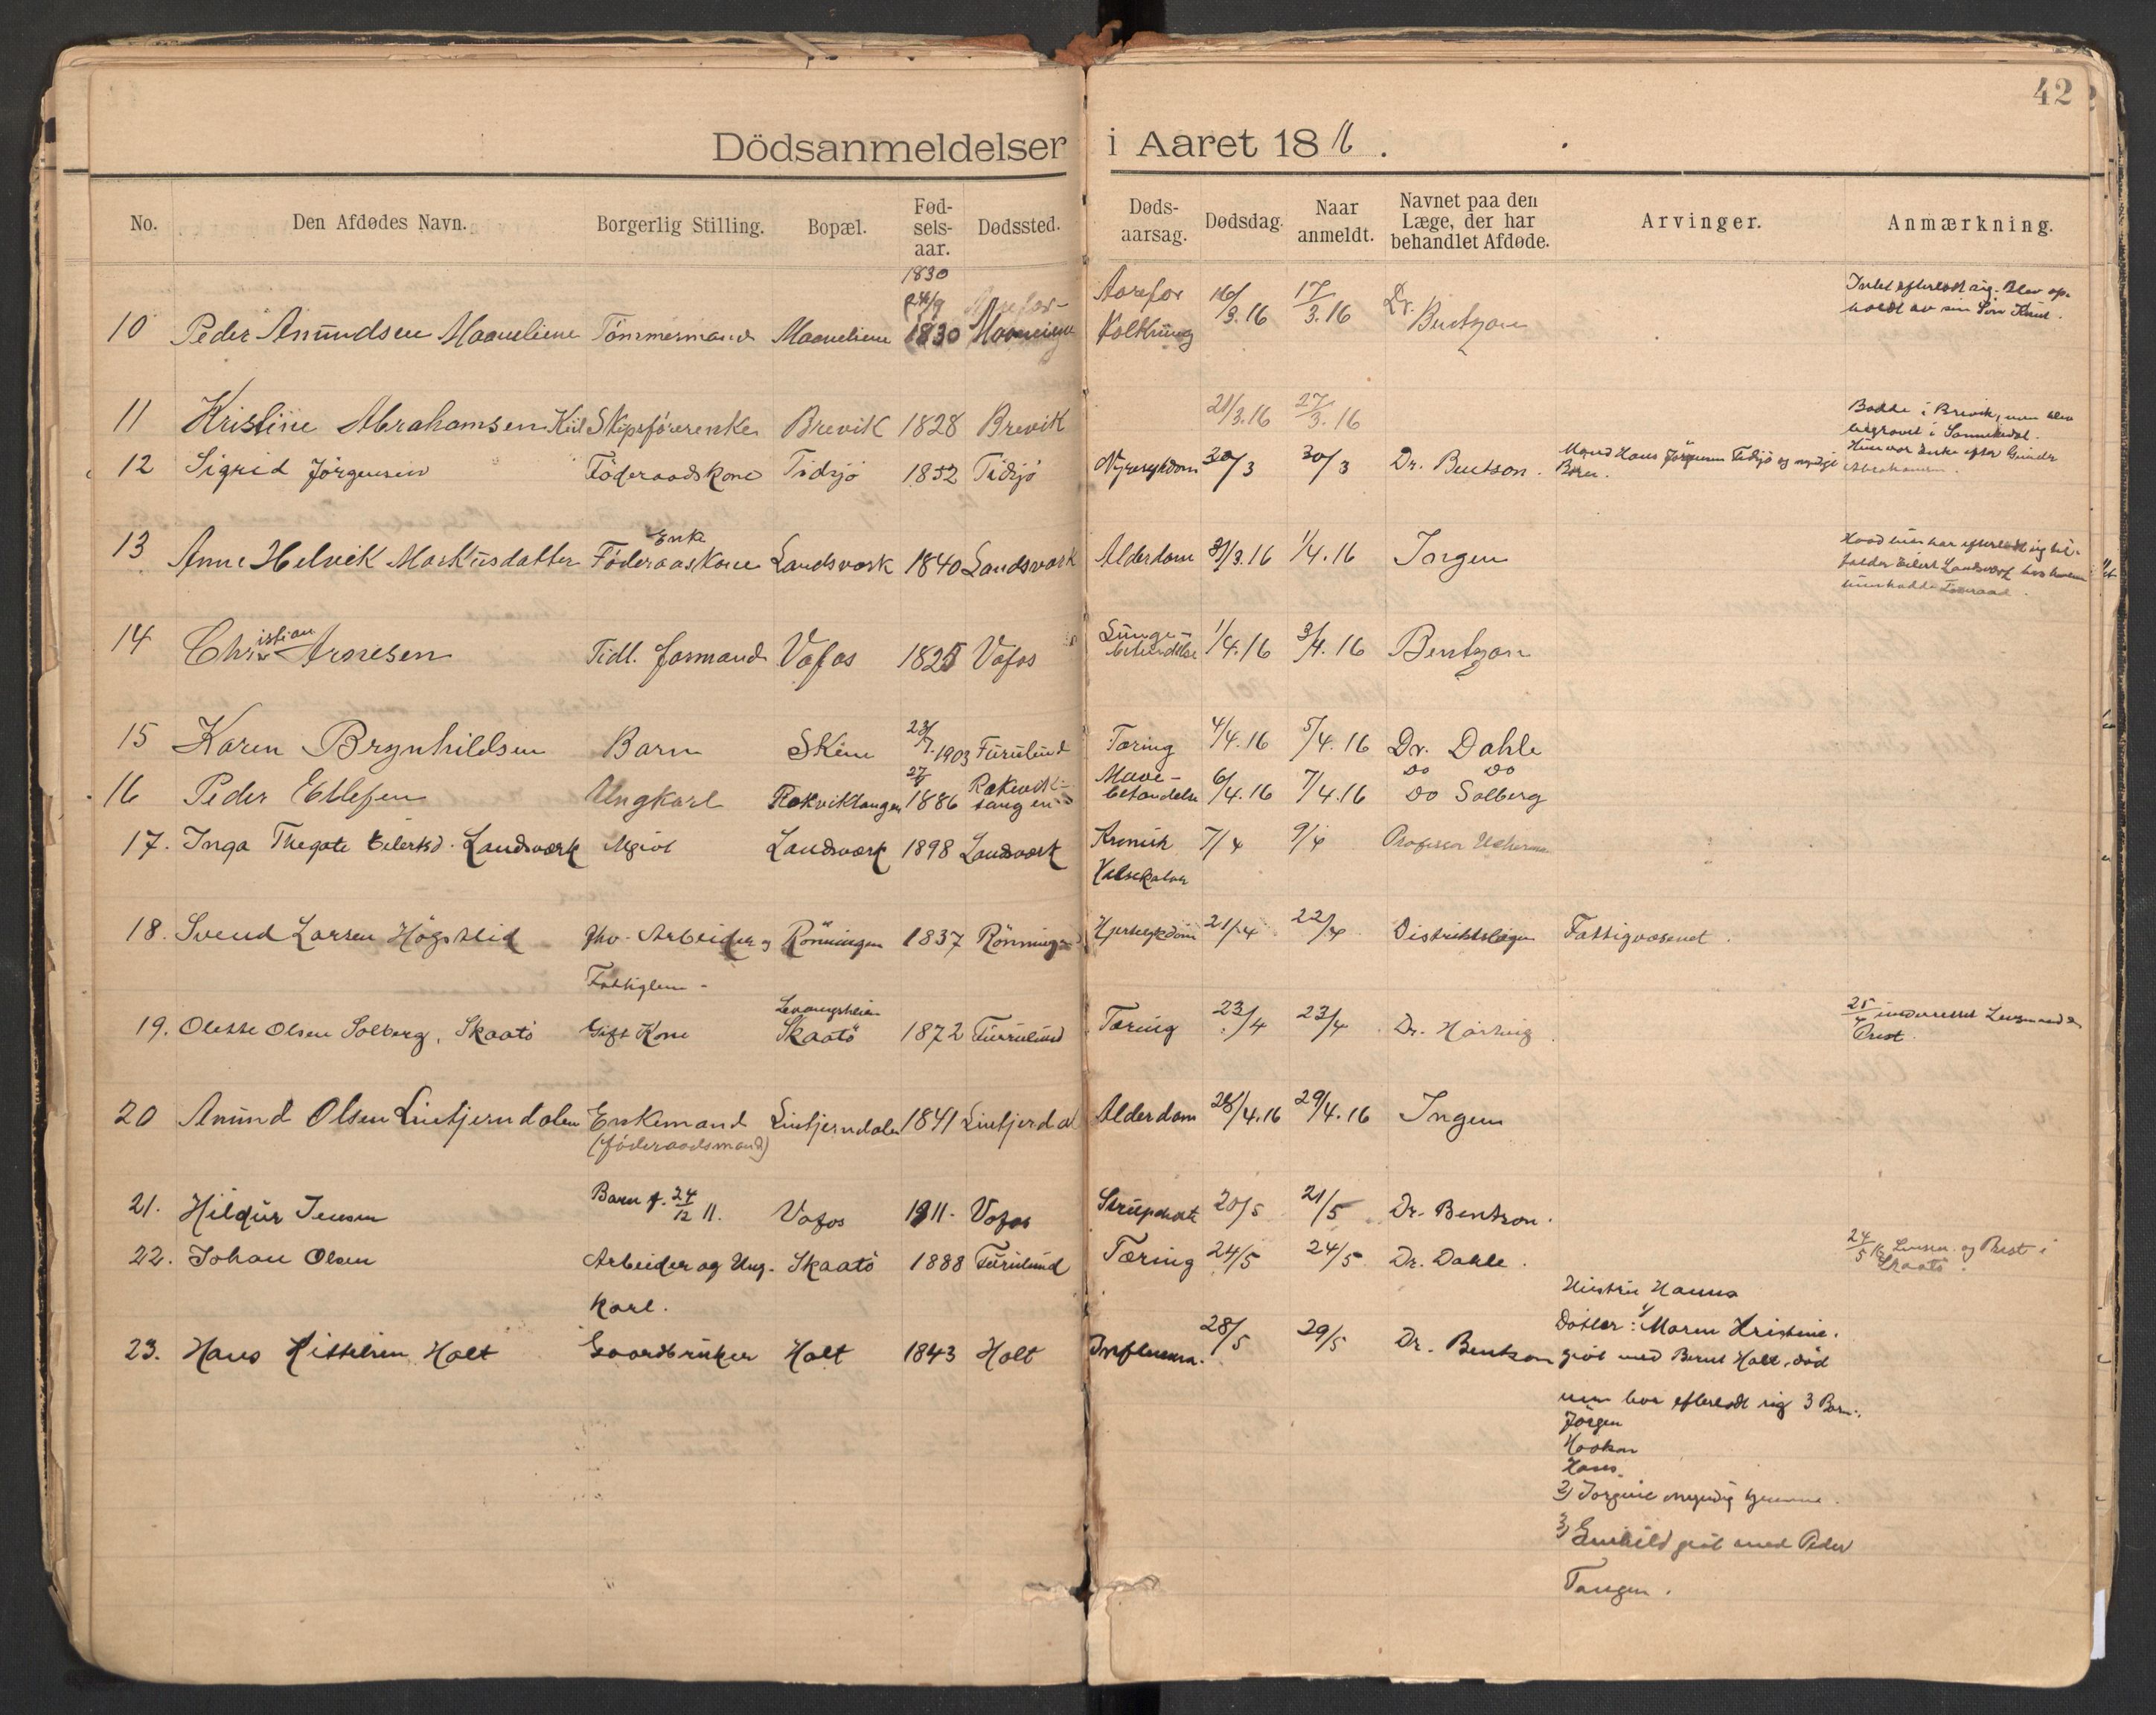 42
Dödsanmeldelser i Aaret 1816.
No. Den Afdødes Navn. Borgerlig Stilling. Bopæl. Fød-sels-aar. Dødssted. Døds-aarsag. Dødsdag. Naar anmeldt. Navnet paa den Læge, der har behandlet Afdøde. Arvinger. Anmærkning.
1830
10 Peder Amundsen Tömmermand 1830 16/3.16 17/3.16 Dr. Bentzon
Intet efterladt sig. Blev op-
holdt av sin Sön Knut.
11 Kristine Abrahamsen Kiil Skipsförerenke Brevik 1828 Brevik 21/3.16 27/3.16
Bodde i Brevik, men blev
begravet i Sannikedal.
Hun var enke efter Gunder
Abrahamsen.
12 Sigrid Jörgensen Föderaadskone Tidsjö 1852 Tidsjö Nyresykdom 30/3 30/3 Dr. Bentson. Mand Hans Jörgensen Tidsjö og myndige
Börn.
Enke
13 Anne Helvik Markusdatter Föderaaskone Landsverk 1840 Landsverk Alderdom 31/3.16 1/4.16 Ingen
Hvad hun har efterladt sig til-
falder Eilert Landsverk hos hvem
hun hadde Föderaad.
14 Christian Arnesen Tidl. Formand Vafos 1825 Vafos Lunge-
betændelse 1/4.16 3/4.16 Bentzon
15 Karen Brynhildsen Barn Skien 23/7.1903 Furulund Tæring 4/4.16 5/4.16 Dr. Dahle
Do Do
16 Peder Ellefsen Ungkarl Rakviktangen 27/ 1886 Rakevik-
tangen Mave-
betændelse 6/4.16 7/4.16 Do Solberg
17. Inga Thegate Eilertsd. Landsverk Ugivt Landsverk 1898 Landsverk Kronisk
Halsekatar 7/4 9/4 Professor
18. Svend Larsen Högshlid fhv. Arbeider og
Fattiglem - Rönningen 1837 Rönningen Hjertesykdom 21/4 22/4 Distriktslægen Fattigvæsenet.
19. Olette Olsen Solberg, Skaatö Gift Kone Levangsheien
Skaatö 1872 Furulund Tæring 23/4 23/4 Dr. Harbig
25/4 underrettet Lensmand og
Prest.
20 Amund Olsen Lintjerndalen Enkemand
(föderaadsmand) Lintjerndalen 1841 Lintjerdal Alderdom 28/4.16 29/4.16 Ingen
21. Hilgur Jensen Barn f. 24/12 11. Vafos 1911. Vafos Strupehoste 20/5 21/5 Dr. Bentzon.
22. Johan Olsen Arbeider og Ung-
karl. Skaatö 1888 Furulund Tæring 24/5 24/5 Dr. Dahle.
24/5 16 Lensm. og Prest i
Skaatö.
23. Hans Kittelsen Holt Gaardbruker Holt 1843 Holt Influensa. 28/5 29/5 Dr. Bentzon
Hustru Hanna
Døtler: 1/ Maren Kristine.
givt med Bernt Holt, död
men har efterladt sig 3 Barn:
Jörgen
Haakon
Hans.
2) Jorgine myndig hjemme.
3) Gunhild givt med Peder
Tangen.